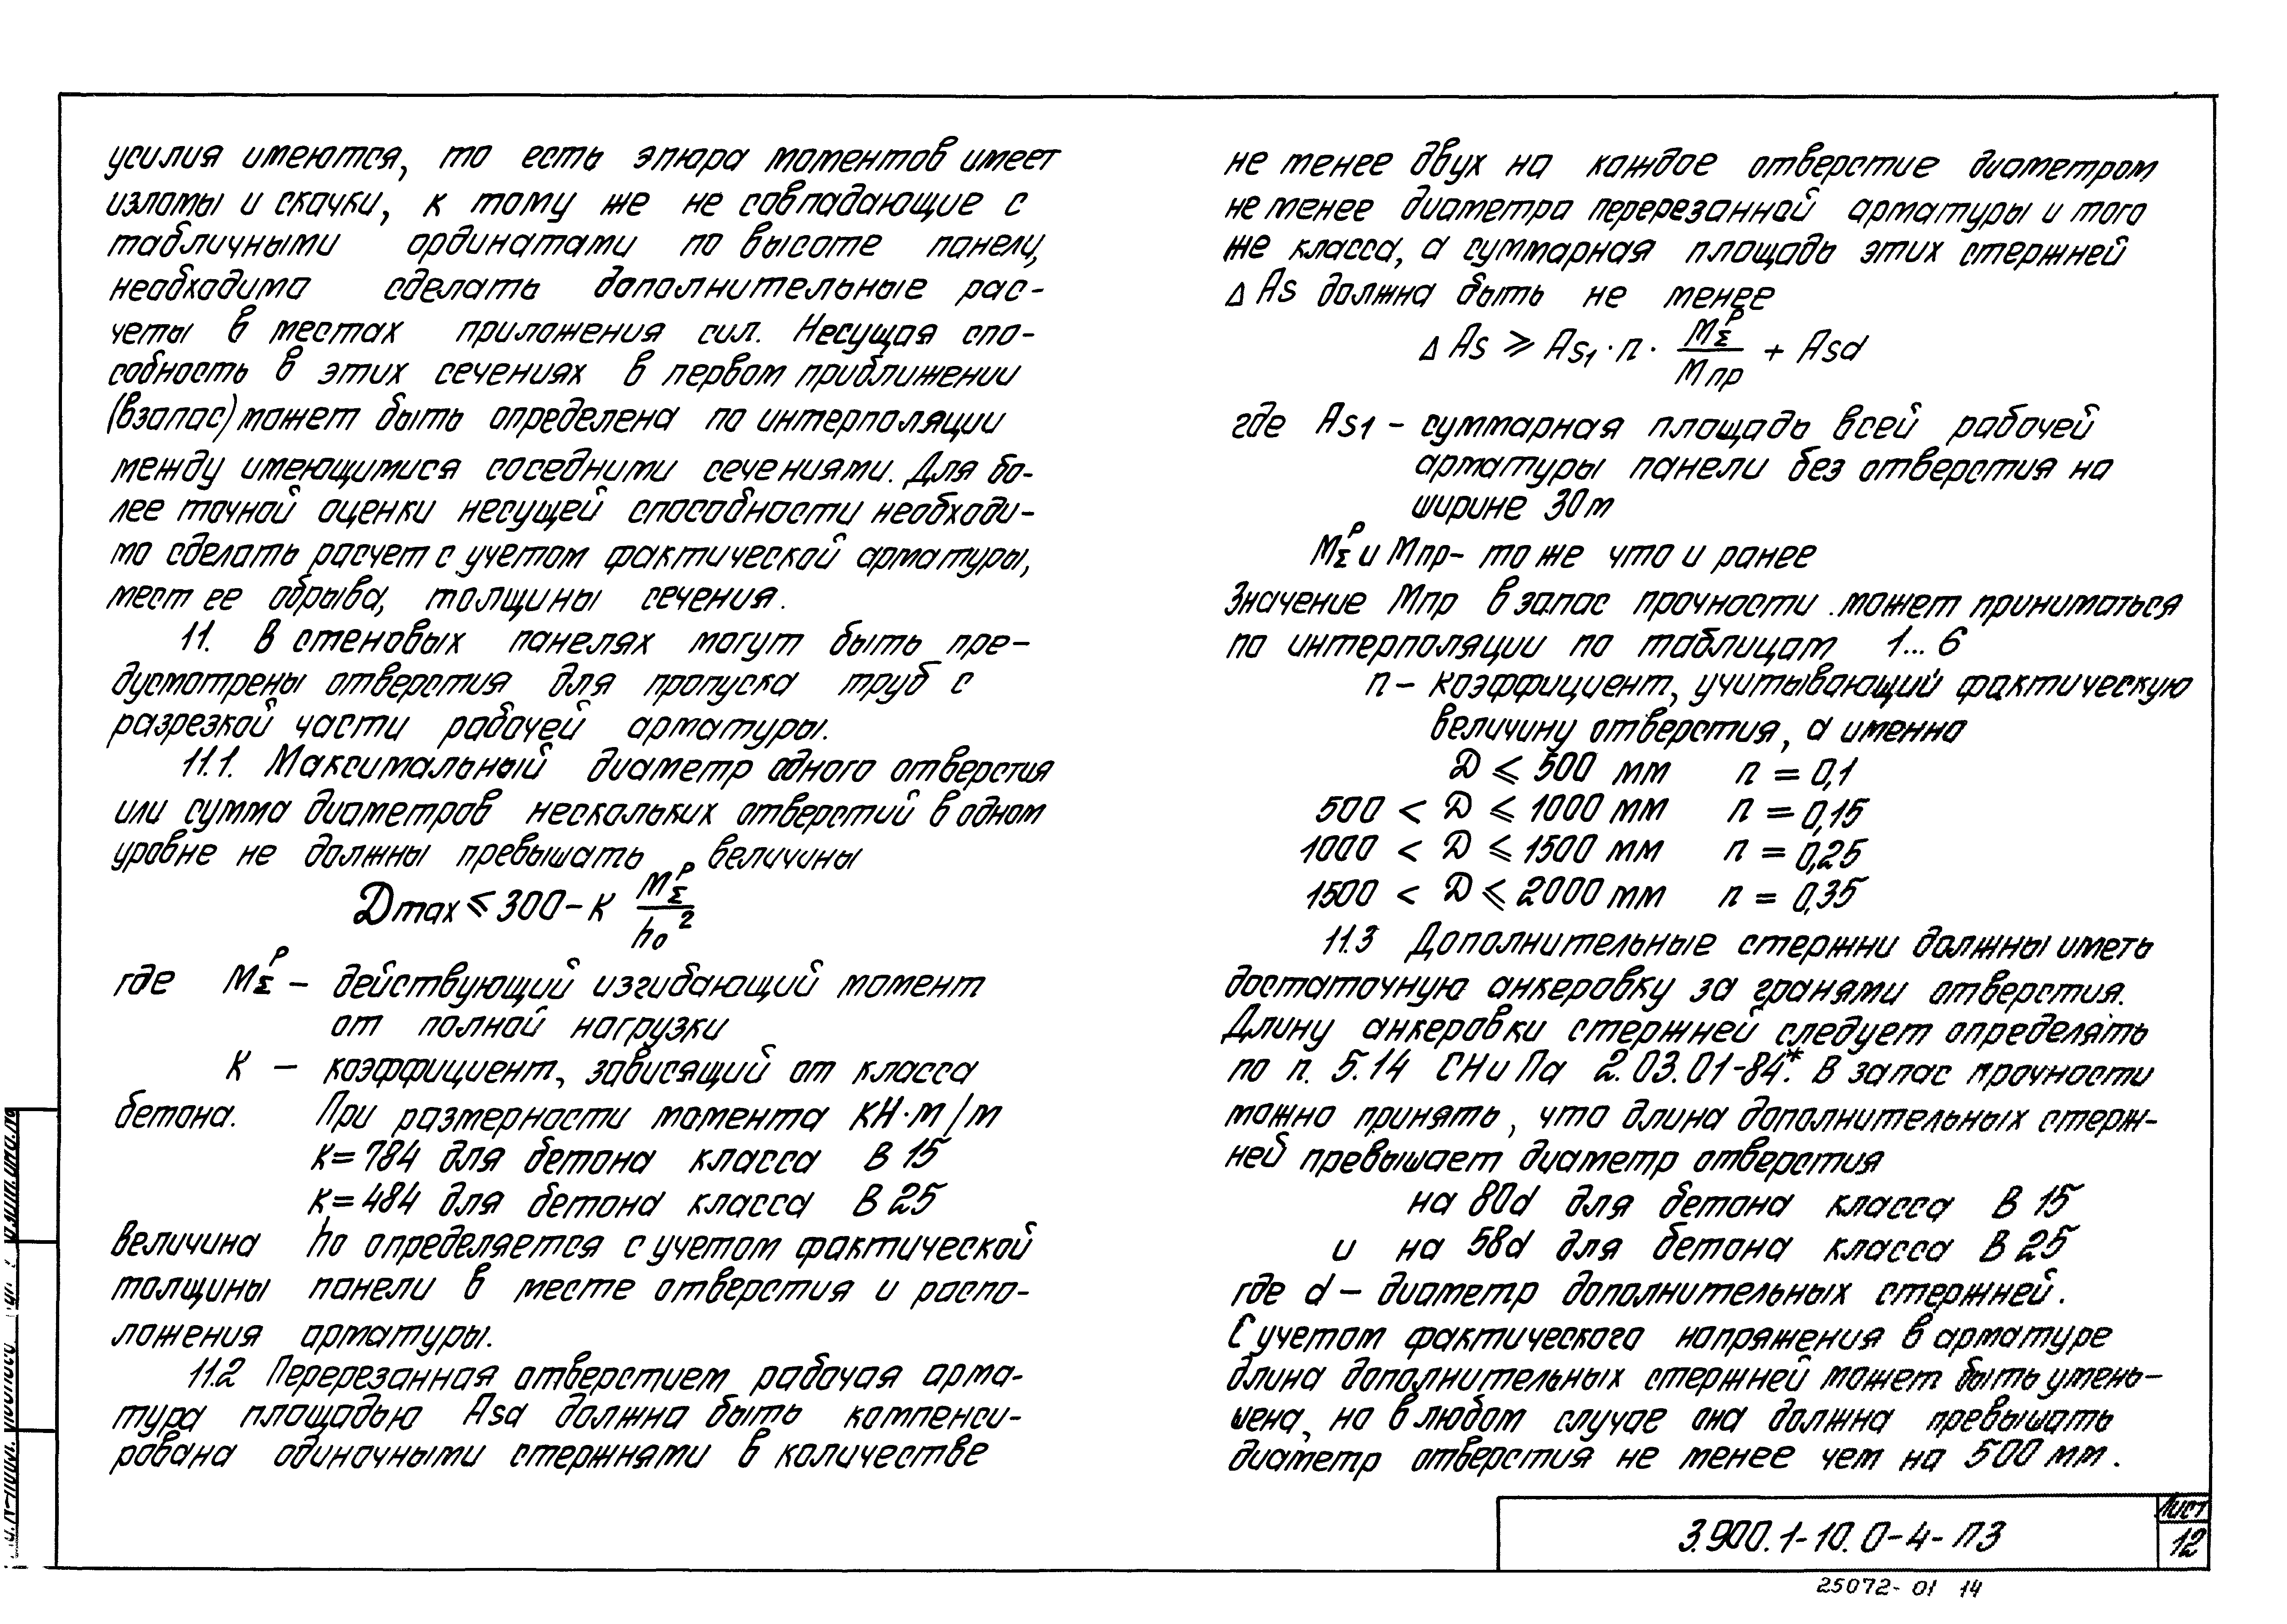 усилия имеются, то есть эпюра моментов имеет
изломы и скачки, к тому же не совпадающие с
табличными ординатами по высоте панели,
необходимо сделать дополнительные рас-
четы в местах приложения сил. Несущая спо-
собность в этих сечениях в первом приближении
(взапас) может быть определена по интерполяции
между имеющимися соседними сечениями. Для бо-
лее точной оценки несущей способности необходи-
мо сделать расчет с учетом фактической арматуры,
мест ее обрыва, толщины сечения.
11. В стеновых панелях могут быть пре-
дусмотрены отверстия для пропуска труб с
разрезкой части рабочей арматуры.
11.1. Максимальный диаметр одного отверстия
или сумма диаметров нескольких отверстий в одном
уровне не должны превышать величины
Dmax ≤ 300 - К MΣᵖ / h₀²
где MΣᵖ - действующий изгибающий момент
от полной нагрузки
К - коэффициент, зависящий от класса
бетона. При размерности момента кН·м/м
К=784 для бетона класса В 15
К=484 для бетона класса В 25
Величина h₀ определяется с учетом фактической
толщины панели в месте отверстия и распо-
ложения арматуры.
11.2 Перерезанная отверстием рабочая арма-
тура площадью Asd должна быть компенси-
рована одиночными стержнями в количестве
не менее двух на каждое отверстие диаметром
не менее диаметра перерезанной арматуры и того
же класса, а суммарная площадь этих стержней
Δ As должна быть не менее
Δ As ⩾ As1 · n · MΣᵖ / Mпр + Asd
где As1 - суммарная площадь всей рабочей
арматуры панели без отверстия на
ширине 30м
MΣᵖ и Mпр- то же что и ранее
Значение Mпр в запас прочности может приниматься
по интерполяции по таблицам 1...6
n - коэффициент, учитывающий фактическую
величину отверстия, а именно
D ⩽ 500 мм n = 0,1
500 < D ⩽ 1000 мм n = 0,15
1000 < D ⩽ 1500 мм n = 0,25
1500 < D ⩽ 2000 мм n = 0,35
11.3 Дополнительные стержни должны иметь
достаточную анкеровку за гранями отверстия.
Длину анкеровки стержней следует определять
по п. 5.14 СНиПа 2.03.01-84*. В запас прочности
можно принять, что длина дополнительных стерж-
ней превышает диаметр отверстия
на 80d для бетона класса В 15
и на 58d для бетона класса В 25
где d - диаметр дополнительных стержней.
С учетом фактического напряжения в арматуре
длина дополнительных стержней может быть умень-
шена, но в любом случае она должна превышать
диаметр отверстия не менее чем на 500 мм.
3.900.1-10.0-4-ПЗ
Лист
12
25072-01 14